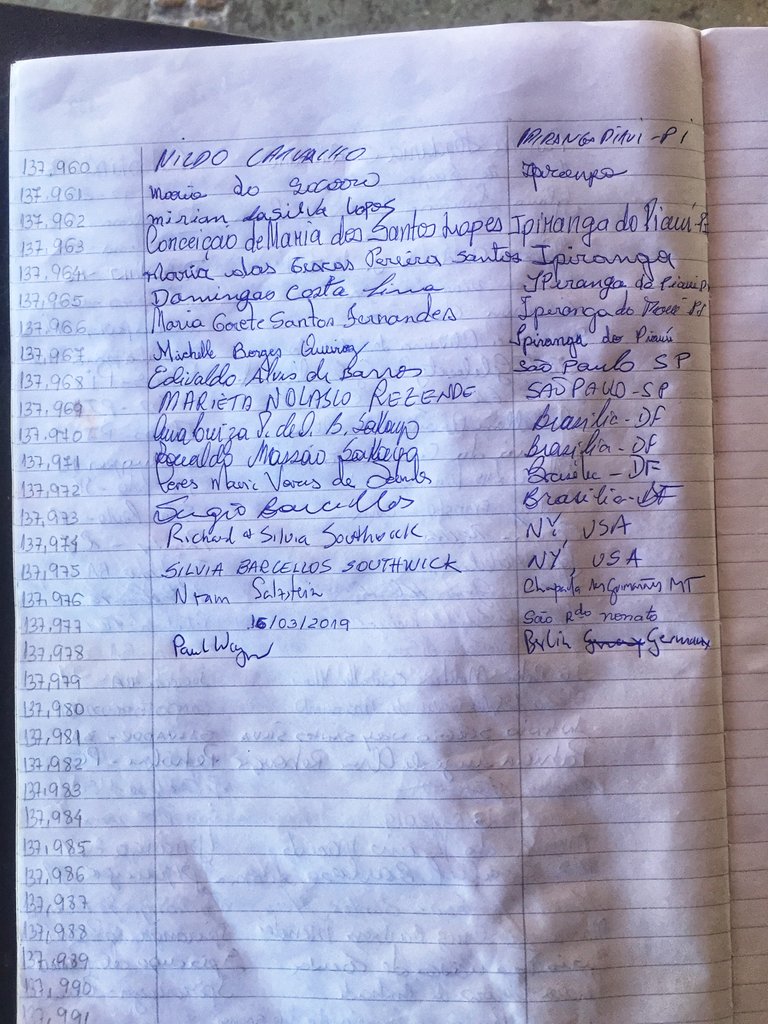 137,960 NILDO CARVALHO IPIRANGA PIAUI-PI
137.961 Maria do Socorro Ipiranga
137,962 mirian dasilva lopes
137,963 Conceição de Maria dos Santos Lopes Ipiranga do Piauí-PI
137,964 Maria das Graças Pereira Santos Ipiranga
137,965 Domingao Costa Lima IPiranga do Piaui PI
137,966 Maria Gorete Santos Fernandes Ipiranga do Piauí PI
137,967 Michelle Borges Queiroz Ipiranga do Piauí
137,968 Edivaldo Alvis de Barros São Paulo SP
137,969 MARIETA NOLASCO REZENDE SÃO PAULO-SP
137.970 Brasília-DF
137,971 Brasília-DF
137,972 Brasília-DF
137,973 Sergio Barcellos Brasília-DF
137,974 Richard & Silvia Southwick NY, USA
137,975 SILVIA BARCELLOS SOUTHWICK NY, USA
137,976 Chapada dos Guimarães MT
137,977 16/03/2019 São Rdo nonato
137,978 Paul Berlin Germany
137,979
137,980
137,981
137,982
137,983
137,984
137,985
137,986
137,937
137,988
137,989
137,990
137,991